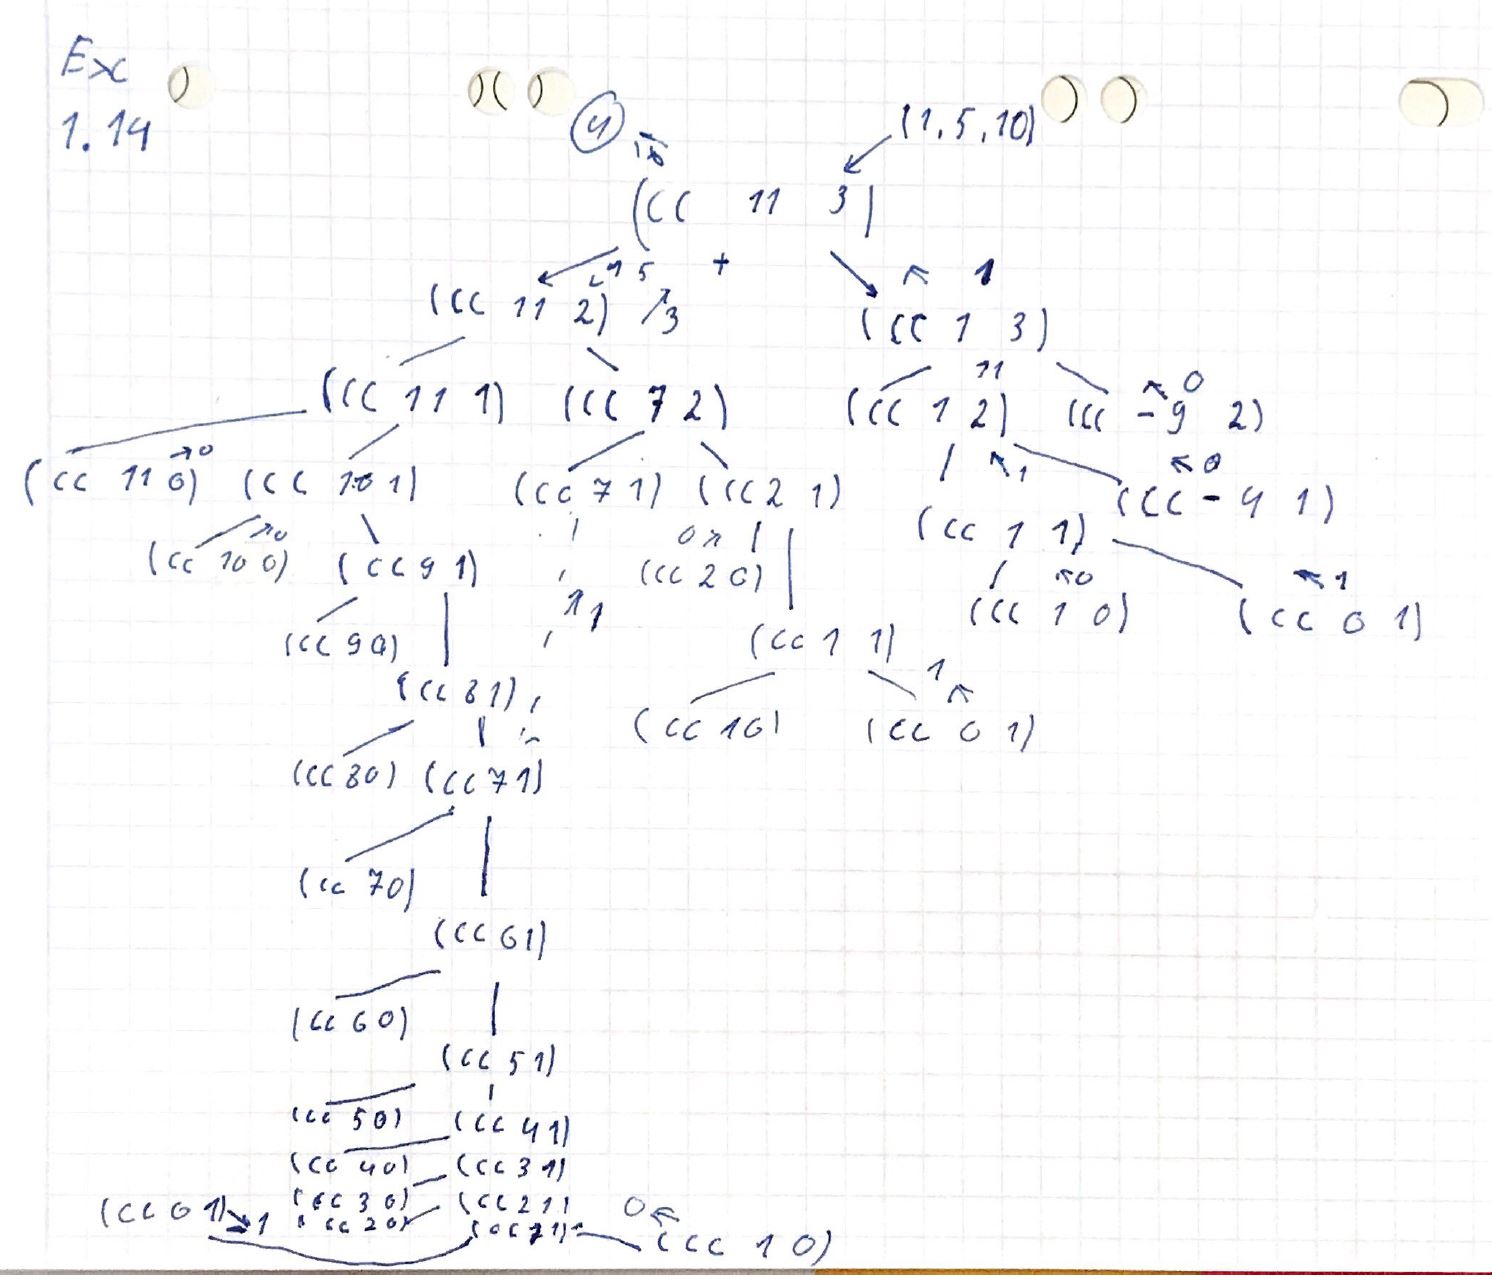 Ex
1.14
4
(1,5,10)
(cc 11 3)
+
1
(cc 11 2) 3
(cc 1 3)
(cc 11 1) (cc 7 2) (cc 1 2) (cc -9 2)
0
(cc 11 0) (cc 10 1) (cc 7 1) (cc 2 1) (cc -4 1)
0 1 0
(cc 10 0) (cc 9 1) (cc 2 0) (cc 1 1)
0 0 0 1
(cc 9 0) 1 (cc 1 1) (cc 1 0) (cc 0 1)
(cc 8 1) 1
(cc 1 0) (cc 0 1)
(cc 8 0) (cc 7 1)
(cc 7 0)
(cc 6 1)
(cc 6 0)
(cc 5 1)
(cc 5 0) (cc 4 1)
(cc 4 0) (cc 3 1)
(cc 0 1) (cc 3 0) (cc 2 1) 0
1 (cc 2 0) (cc 1 1) (cc 1 0)